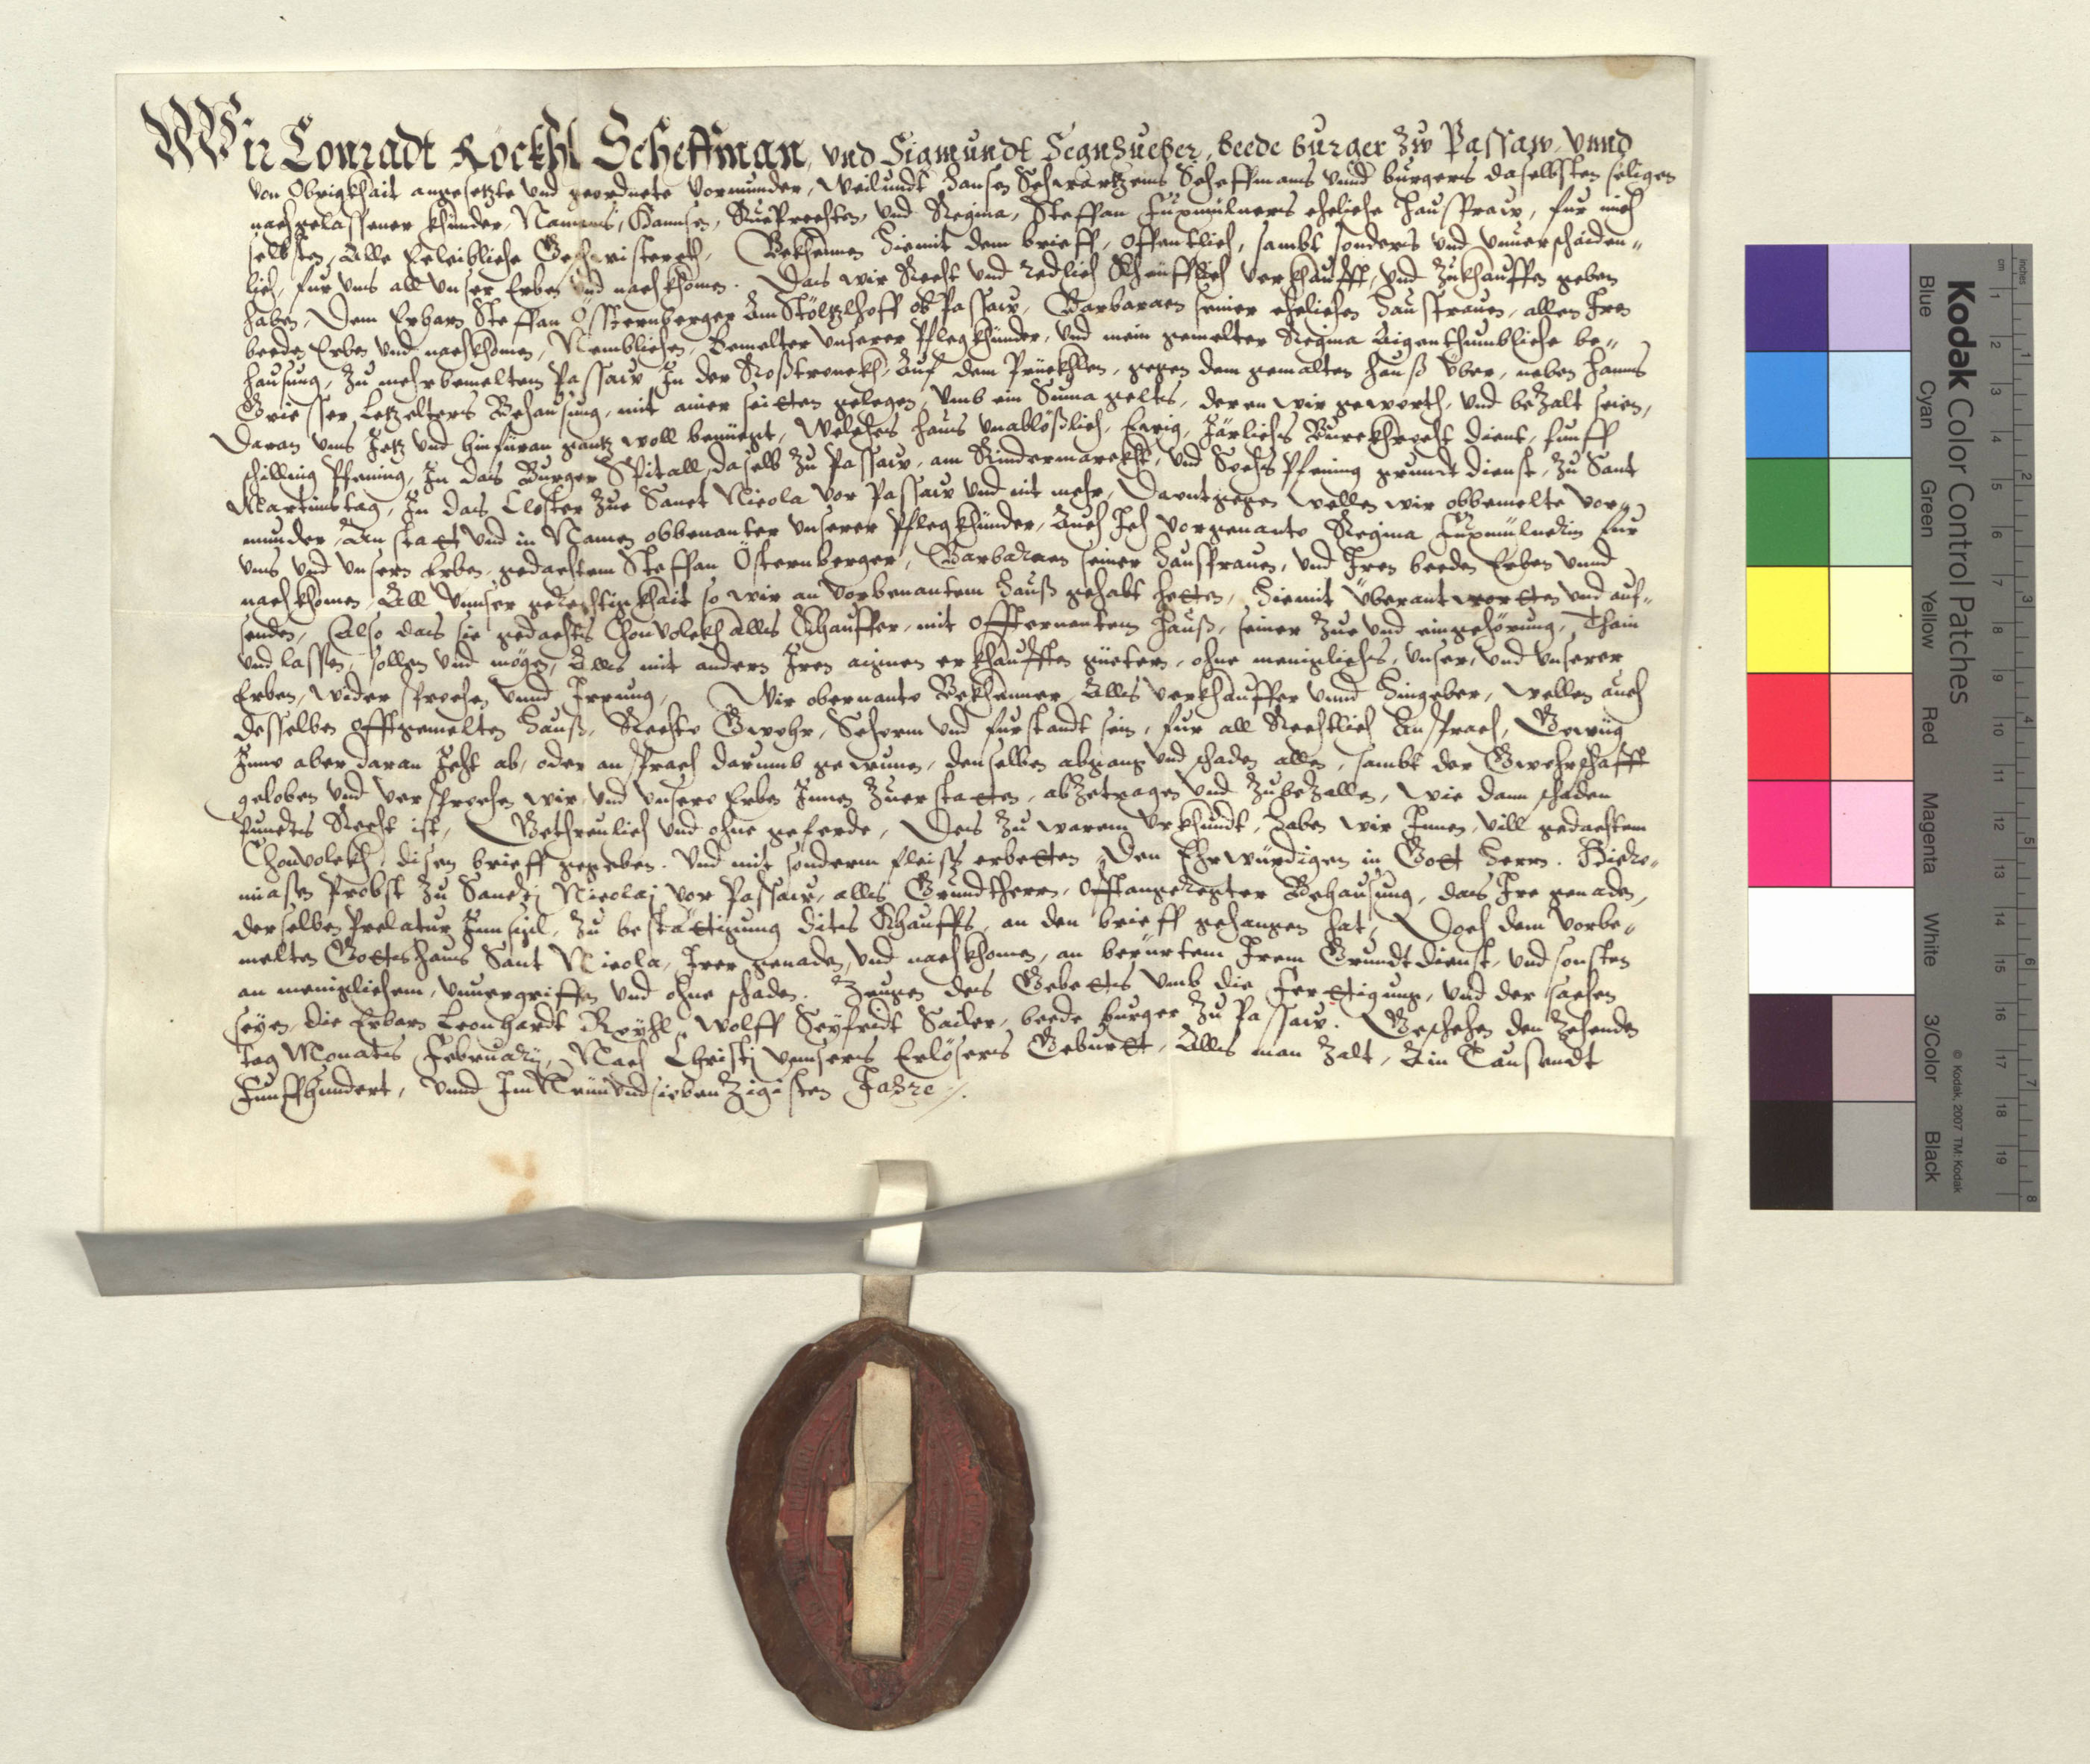 Wir Conradt Röckhl Scheffman, vnd Sigmundt Segnzueber, beede burger Zw Passaw, vnnd
von Obrigkhait angesetzte vnd geordnete Vormunder, Weilundt Hansen Schwartzens Scheffmans vnnd burgers daselbsten seligen
nachgelassener khinder, Namens, Hannsen, Rueprechten, vnd Regina, Steffan Fuxmülners eheliche Hausfraw, fur mich
selbsten, Alle Eeleibliche Geschwistereth, Bekhennen Hiemit dem brieff, offentlich, sambt sonders vnd vnuerschaiden„
lich, fur vns all vnser Erben vnd nachkhomen. Das wir Recht vnd redlich Kheufflich verkhaufft, vnd Zukhauffen geben
haben, Dem Erbarn Steffan Össternberger Am Stöltzlhoff ob Passaw, Barbaraen seiner ehelichen Hausfrauen, allen Iren
beeden Erben vnd nachkhomen, Nemblichen, Bemelter vnserer Pflegkhinder, vnd mein gemelter Regina Aigenthumbliche be„
hausung, Zu mehrbemeltem Passaw In der Roßtrenckh, Auf dem Prückhlen, gegen dem gemalten hauß Über, neben Hanns
Griesser Letzelters Behausung, mit ainer seitten gelegen, Vmb ein Suma geltes, deren wir gewerth, vnd beZalt seien,
Daran vns Jetz vnd hinfüran gantz woll benüegt, Welches haus vnablößlich, Ewig, Järliches Burckhrecht dient, funff
schilling Pfening, In das Burger Spitall daselb Zu Passaw, am Rindermarckht, vnd Sechs Pfening grundt dienst, Zu Sant
Martinstag, In das Closter Zue Sanct Nicola Vor Passaw vnd nit mehr, Darentgegen wellen wir obbemelte Vor„
munder, An statt vnd in Namen obbenanter vnserer Pflegkhinder, Auch Ich vorgenante Regina Fuxmülnerin fur
vns vnd vnsern Erben, gedachtem Steffan Össternberger, Barbaraen seiner Hausfrauen, vnd Iren beeden Erben vnnd
nachkhomen, All vnnser gerechtigkhait so wir an vorbenantem Hauß gehabt hetten, Hiemit Überantwortten vnd auf„
senden, Also das sie gedachts Chonvolckh Alls Khauffer, mit offternentem Hauß, seiner Zue vnd eingehörung, Thain
vnd lassen, sollen vnd mögen, Alls mit andern Iren aignen erkhaufften güetern, ohne meniglichs, vnser, vnd vnserer
Erben, Widersprechen vnnd Irrung, Wir obernante Bekhenner Alls Verkhauffer vnnd Hingeber, wellen auch
desselben offtgemelten Hauß, Rechte Gwehr, Scherm vnd furstandt sein, fur all Rechtlich Ansprach, Gewüg
Inne aber daran Icht ab, oder ansprach darumb gewunen, denselben abgang vnd schaden allen, sambt der Gwehrschafft
geloben vnd versprechen wir vnd vnsere Erben Innen Zuerstatten, abZetragen vnd Zubezallen, wie dann schaden
pundts Recht ist, Gethreulich vnd ohne geferde, Des Zu warem Vrkhundt, Haben wir Innen, vill gedachtem
Chonvolckh, disen brieff gegeben. Vnd mit sonderm fleisz erbetten, Den Ehrwürdigen in Gott Herrn. Hiero„
miasen Probst Zu Sancti Nicolai Vor Passaw, alls Grundtherrn, offtangeregter Behausung, das Ire genaden,
derselben Prelatur Innsigl, Zu bestättigung dits Khauffs, an den brieff gehangen hat, Doch dem vorbe„
melten Gottshaus Sant Nicola, Irer genaden, vnd nachkhomen, an berürtem Irem Grundt dienst, vnd sonsten
an meniglichem, vnuergriffen vnd ohne schaden. Zeugen des Gebetts Vmb die Ferttigung, vnd der sachen
seyen, die Erbarn Leonhardt Reyhl, Wolff Seyfridt Sailer, beede burger Zu Passaw. Beschehen den Zehenden
tag Monats Februarij, Nach Christj vnnsers Erlösers Geburtt, Alls man Zalt, Ain Tausendt
Funffhundert, vnnd Im Neünvndsiebenzigisten Jahre
Kodak Color Control Patches
Blue Cyan Green Yellow Red Magenta White 3/Color Black
© Kodak, 2007 TM: Kodak
cm 1 2 3 4 5 6 7 8 9 10 11 12 13 14 15 16 17 18 19
inches 1 2 3 4 5 6 7 8